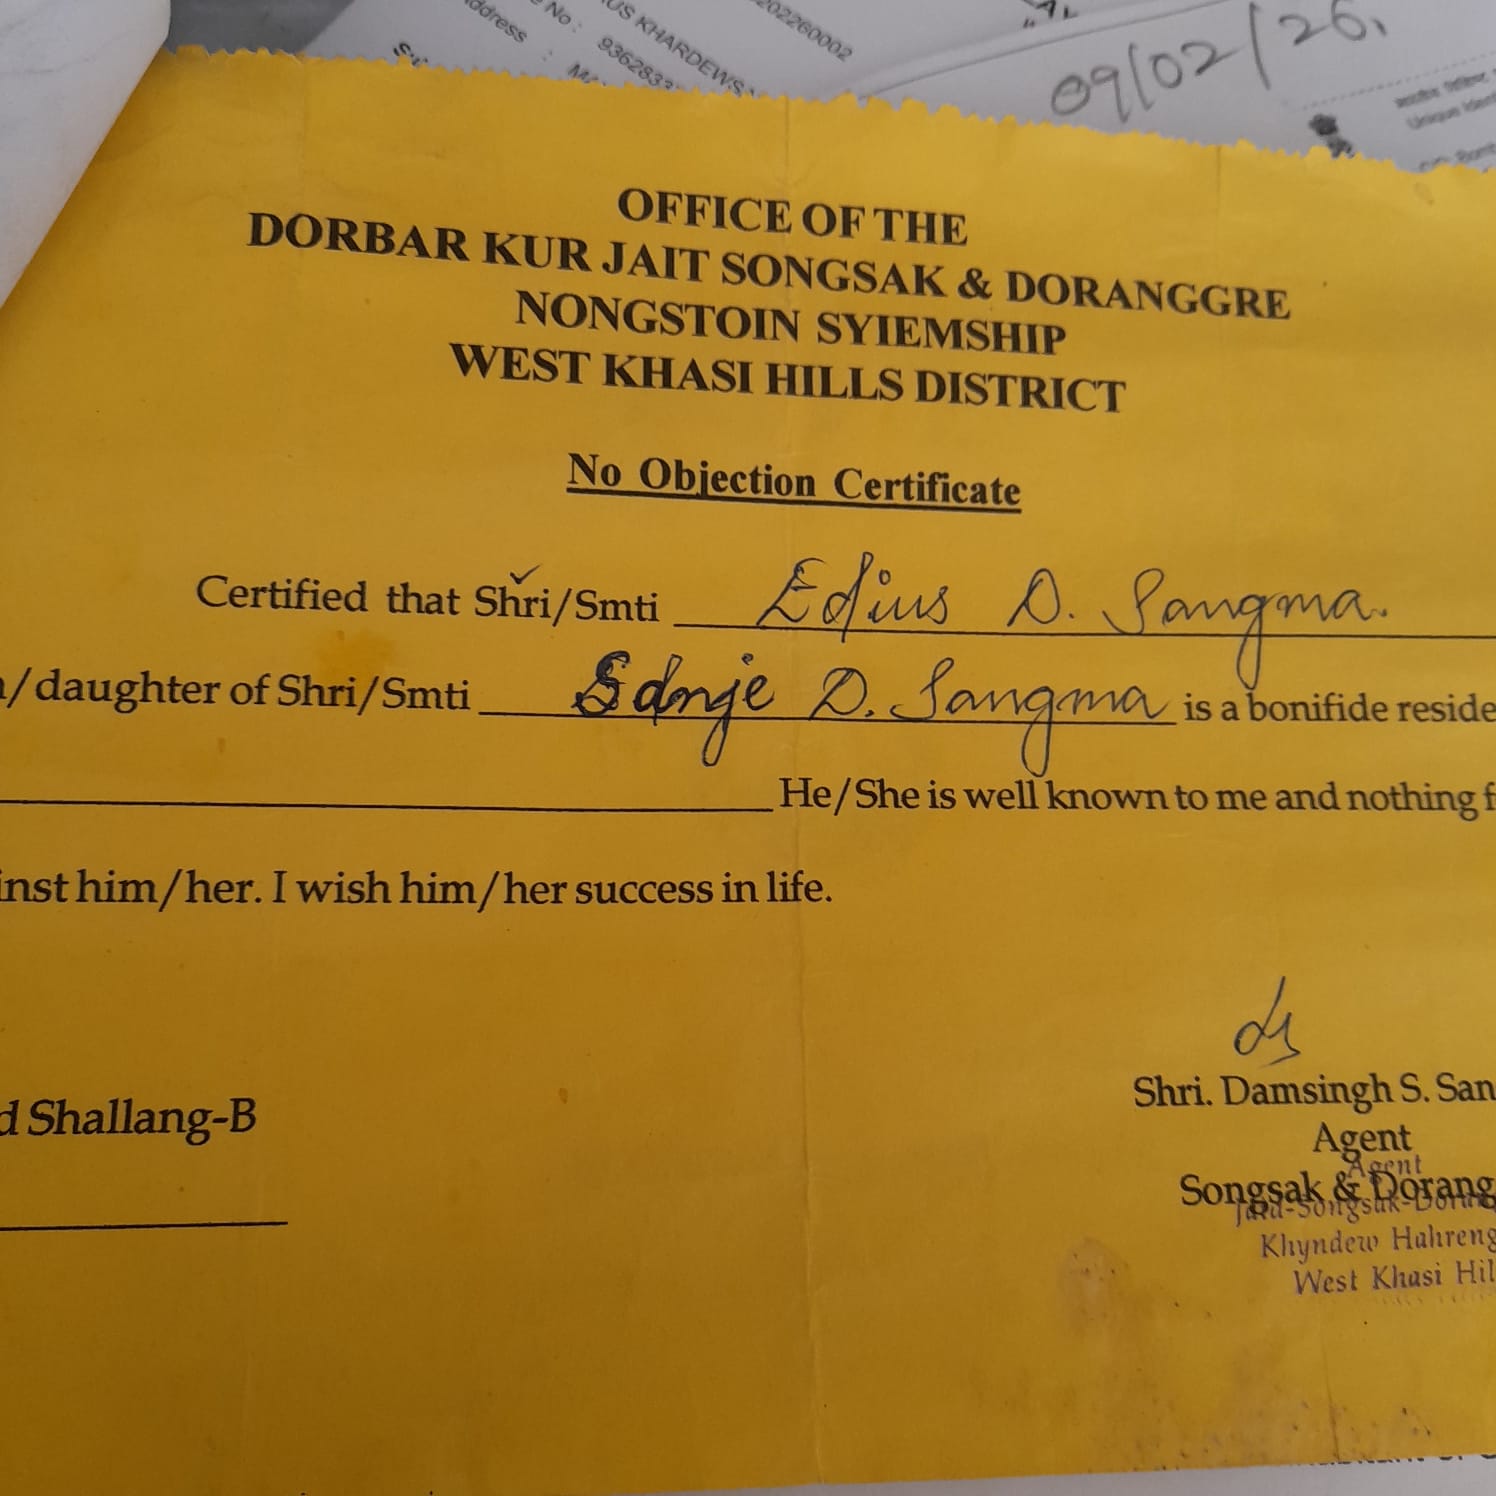 202260002
US KHARDEWS
No :
936283
ddress :
09/02/26.
OFFICE OF THE
DORBAR KUR JAIT SONGSAK & DORANGGRE
NONGSTOIN SYIEMSHIP
WEST KHASI HILLS DISTRICT
No Objection Certificate
Certified that Shri/Smti Edius D. Sangma.
/daughter of Shri/Smti D. Sangma is a bonifide reside
He/She is well known to me and nothing f
inst him/her. I wish him/her success in life.
Shri. Damsingh S. San
d Shallang-B
Agent
Agent
Songsak & Dorang
Khyndew Hahreng
West Khasi Hil